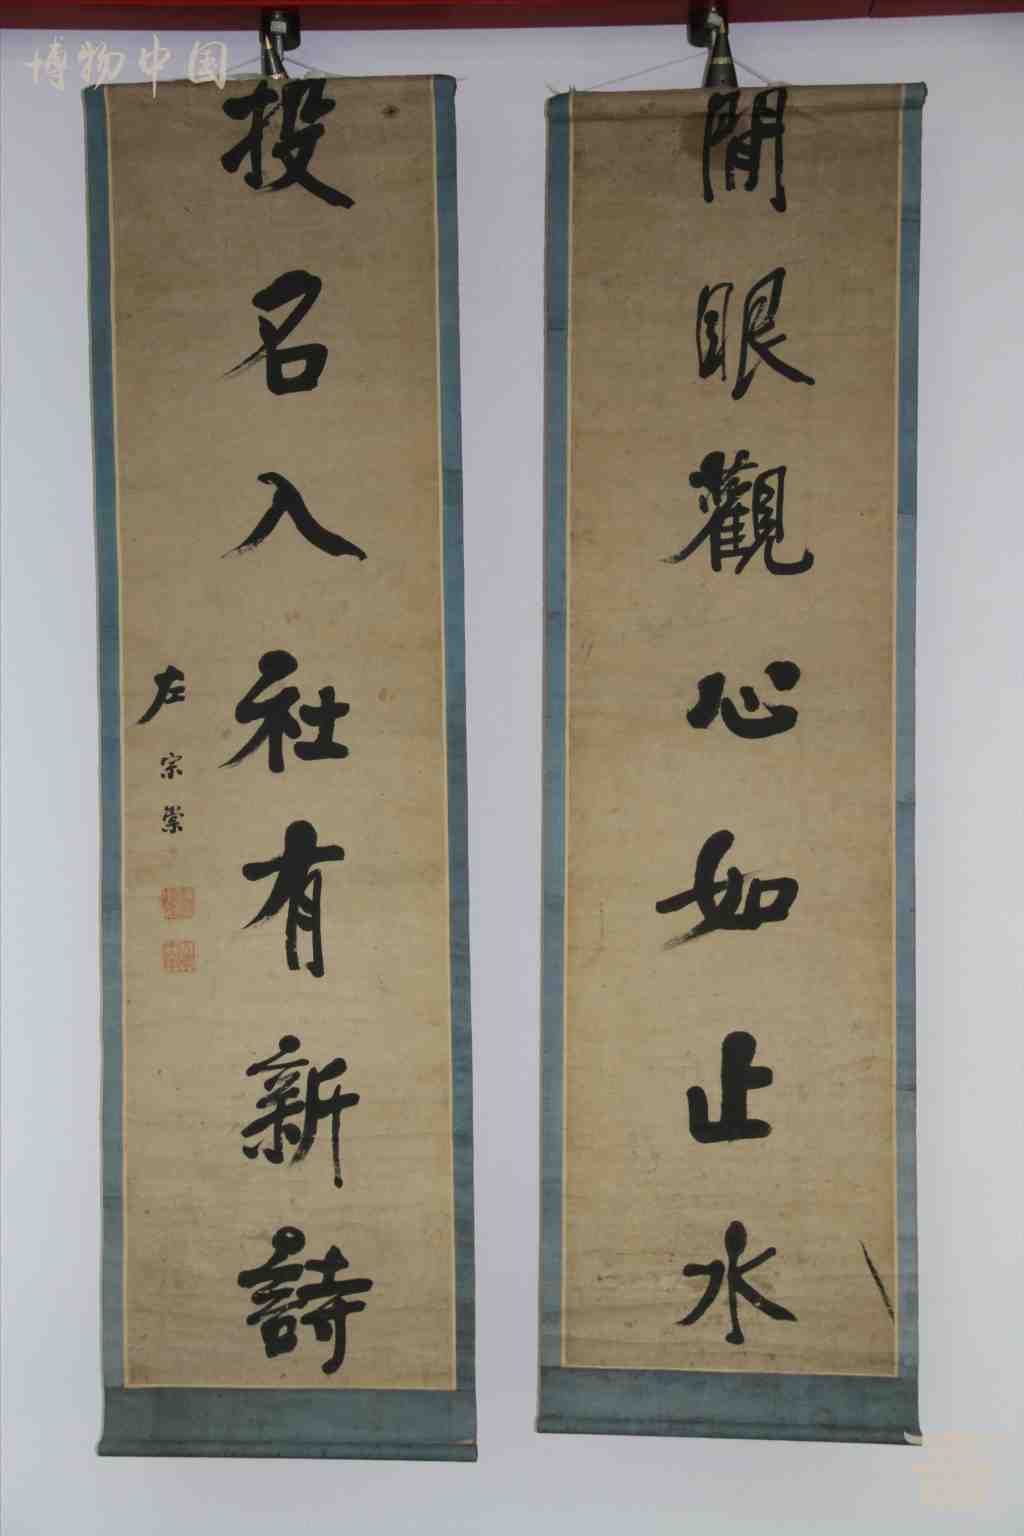 博物中国
閒眼觀心如止水
投名入社有新詩
左宗棠